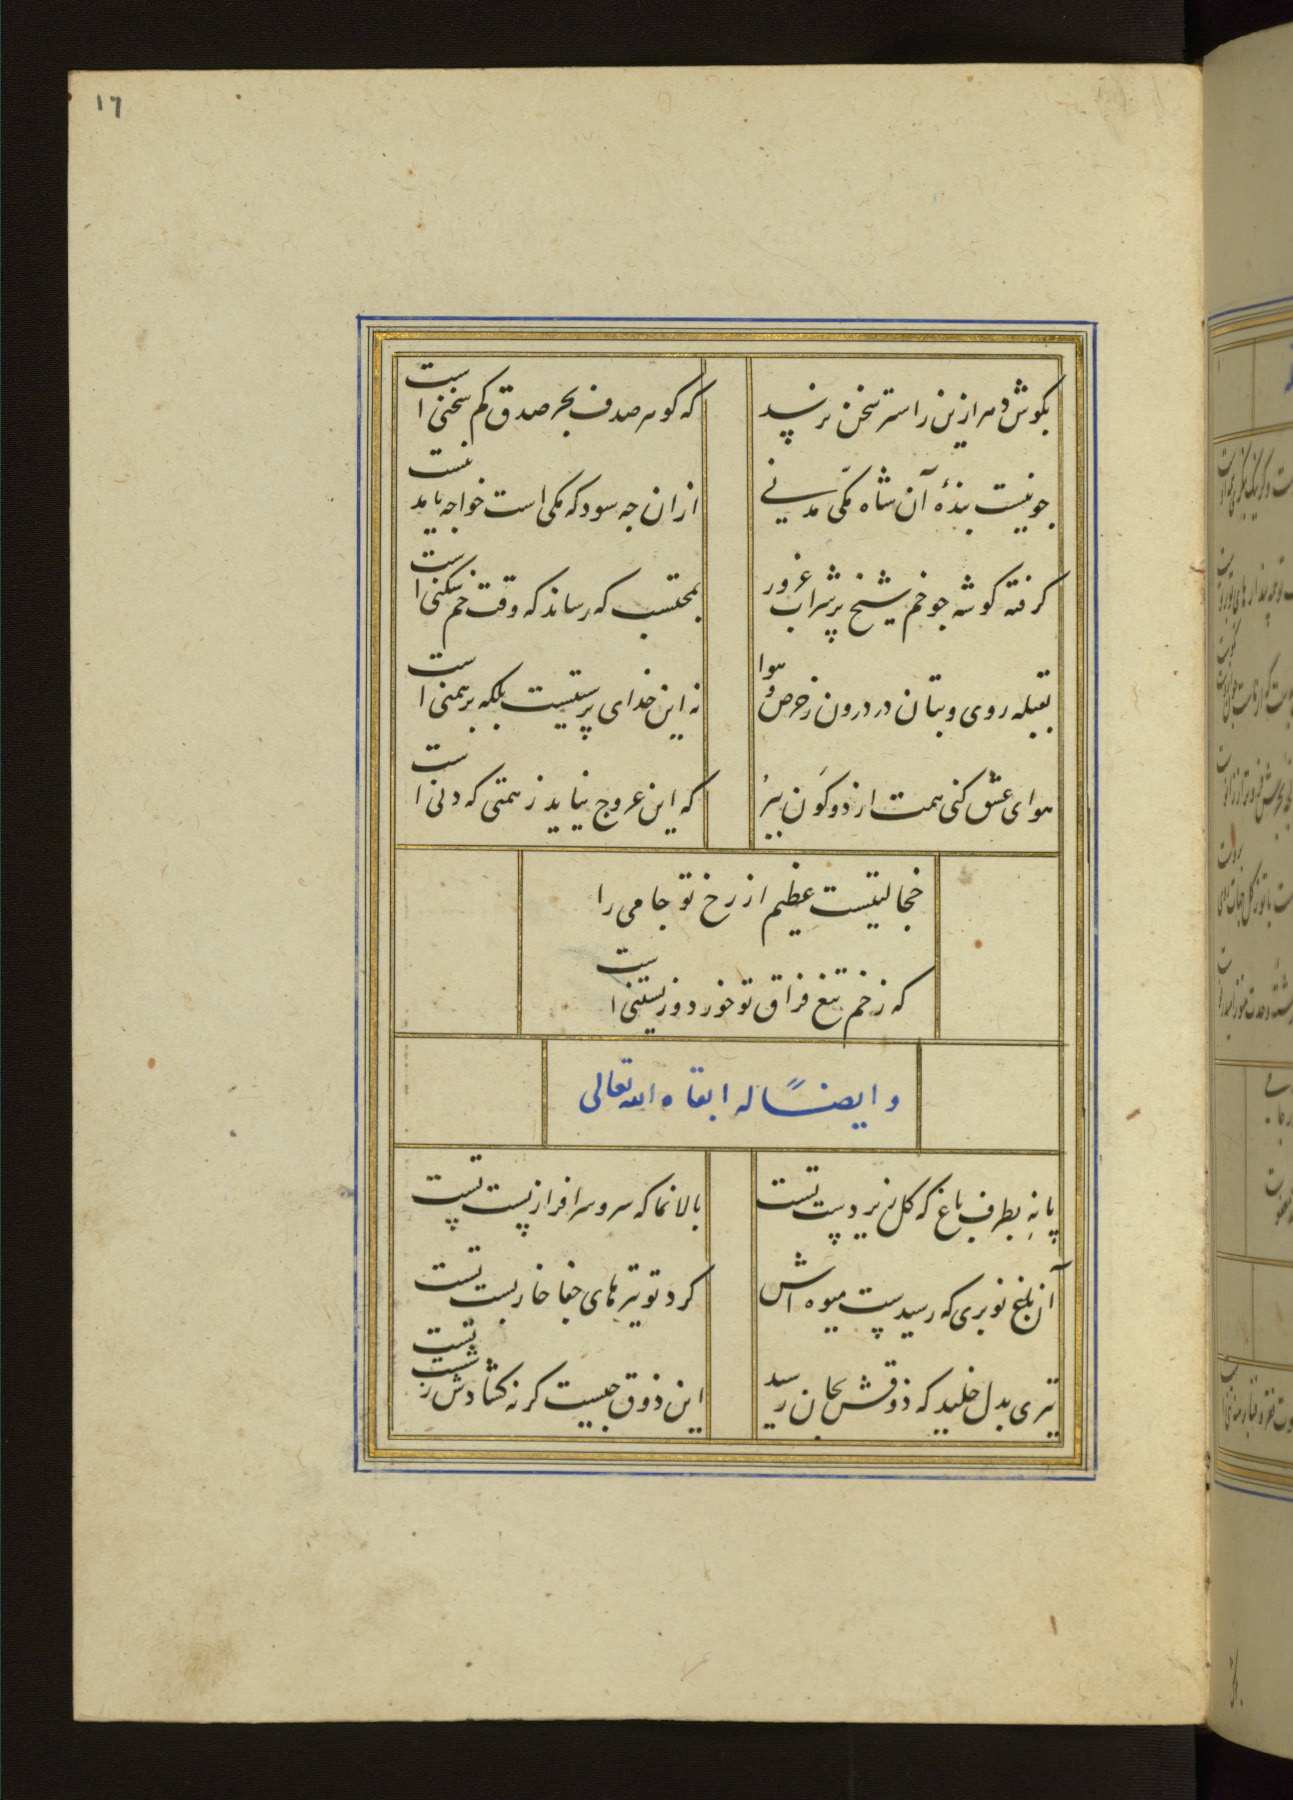 ١٦
بگوش دم مزن این راستر سخن نرسد
که گوهر صدف بحر صدق کم سخنی است
چو نیست بندهٔ آن شاه مکّی مدنی
ازان چه سود که مکی است خواجه یا مدنیست
گرفته گوشه چو خم شیخ پر شراب غرور
بمحتسب که رساند که وقت خم شکنی است
بقبله روی و بتان در درون ز حرص و هوا
نه این خدای پرستیست بلکه برهمنی است
هوای عشق کنی همت از دو کون ببُر
که این عروج نیاید ز همتی که دنی است
خجالتیست عظیم از رخ تو جامی را
که زخم تیغ فراق تو خورد و زیستنی است
و ایضاً له ابقاه الله تعالی
پا نِه بطرف باغ که گل زیر دست تست
بالا نما که سرو سرافراز پست تست
آن بلخ نوبری که رسیدست میوه اش
گرد تو تیرهای جفا خاربست تست
تیری بدل خلید که ذوقش بجان رسید
این ذوق چیست گر نه گشادش ز شست تست